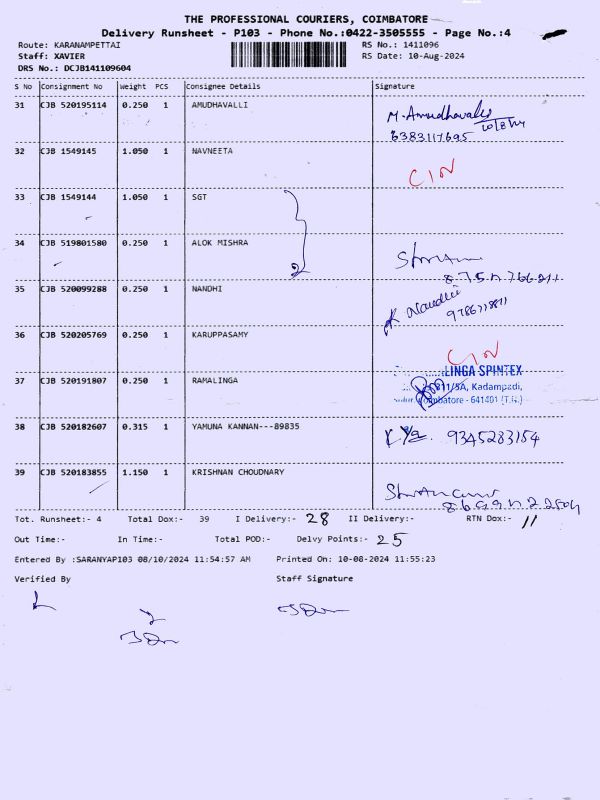 THE PROFESSIONAL COURIERS, COIMBATORE
Delivery Runsheet - P103 - Phone No.:0422-3505555 - Page No.:4
Route: KARANAMPETTAI RS No.: 1411096
Staff: XAVIER RS Date: 10-Aug-2024
DRS No.: DCJB141109604
S No Consignment No Weight PCS Consignee Details Signature
31 CJB 520195114 0.250 1 AMUDHAVALLI M. Amudhavalli
6383117695
32 CJB 1549145 1.050 1 NAVNEETA
33 CJB 1549144 1.050 1 SGT
34 CJB 519801580 0.250 1 ALOK MISHRA
35 CJB 520099288 0.250 1 NANDHI
36 CJB 520205769 0.250 1 KARUPPASAMY
37 CJB 520191807 0.250 1 RAMALINGA LINGA SPINTEX
811/5A, Kadampadi,
Coimbatore - 641401 (T.N.)
38 CJB 520182607 0.315 1 YAMUNA KANNAN---89835 9345283154
39 CJB 520183855 1.150 1 KRISHNAN CHOUDNARY
Tot. Runsheet:- 4 Total Dox:- 39 I Delivery:- 28 II Delivery:- RTN Dox:- 11
Out Time:- In Time:- Total POD:- Delvy Points:- 25
Entered By :SARANYAP103 08/10/2024 11:54:57 AM Printed On: 10-08-2024 11:55:23
Verified By Staff Signature